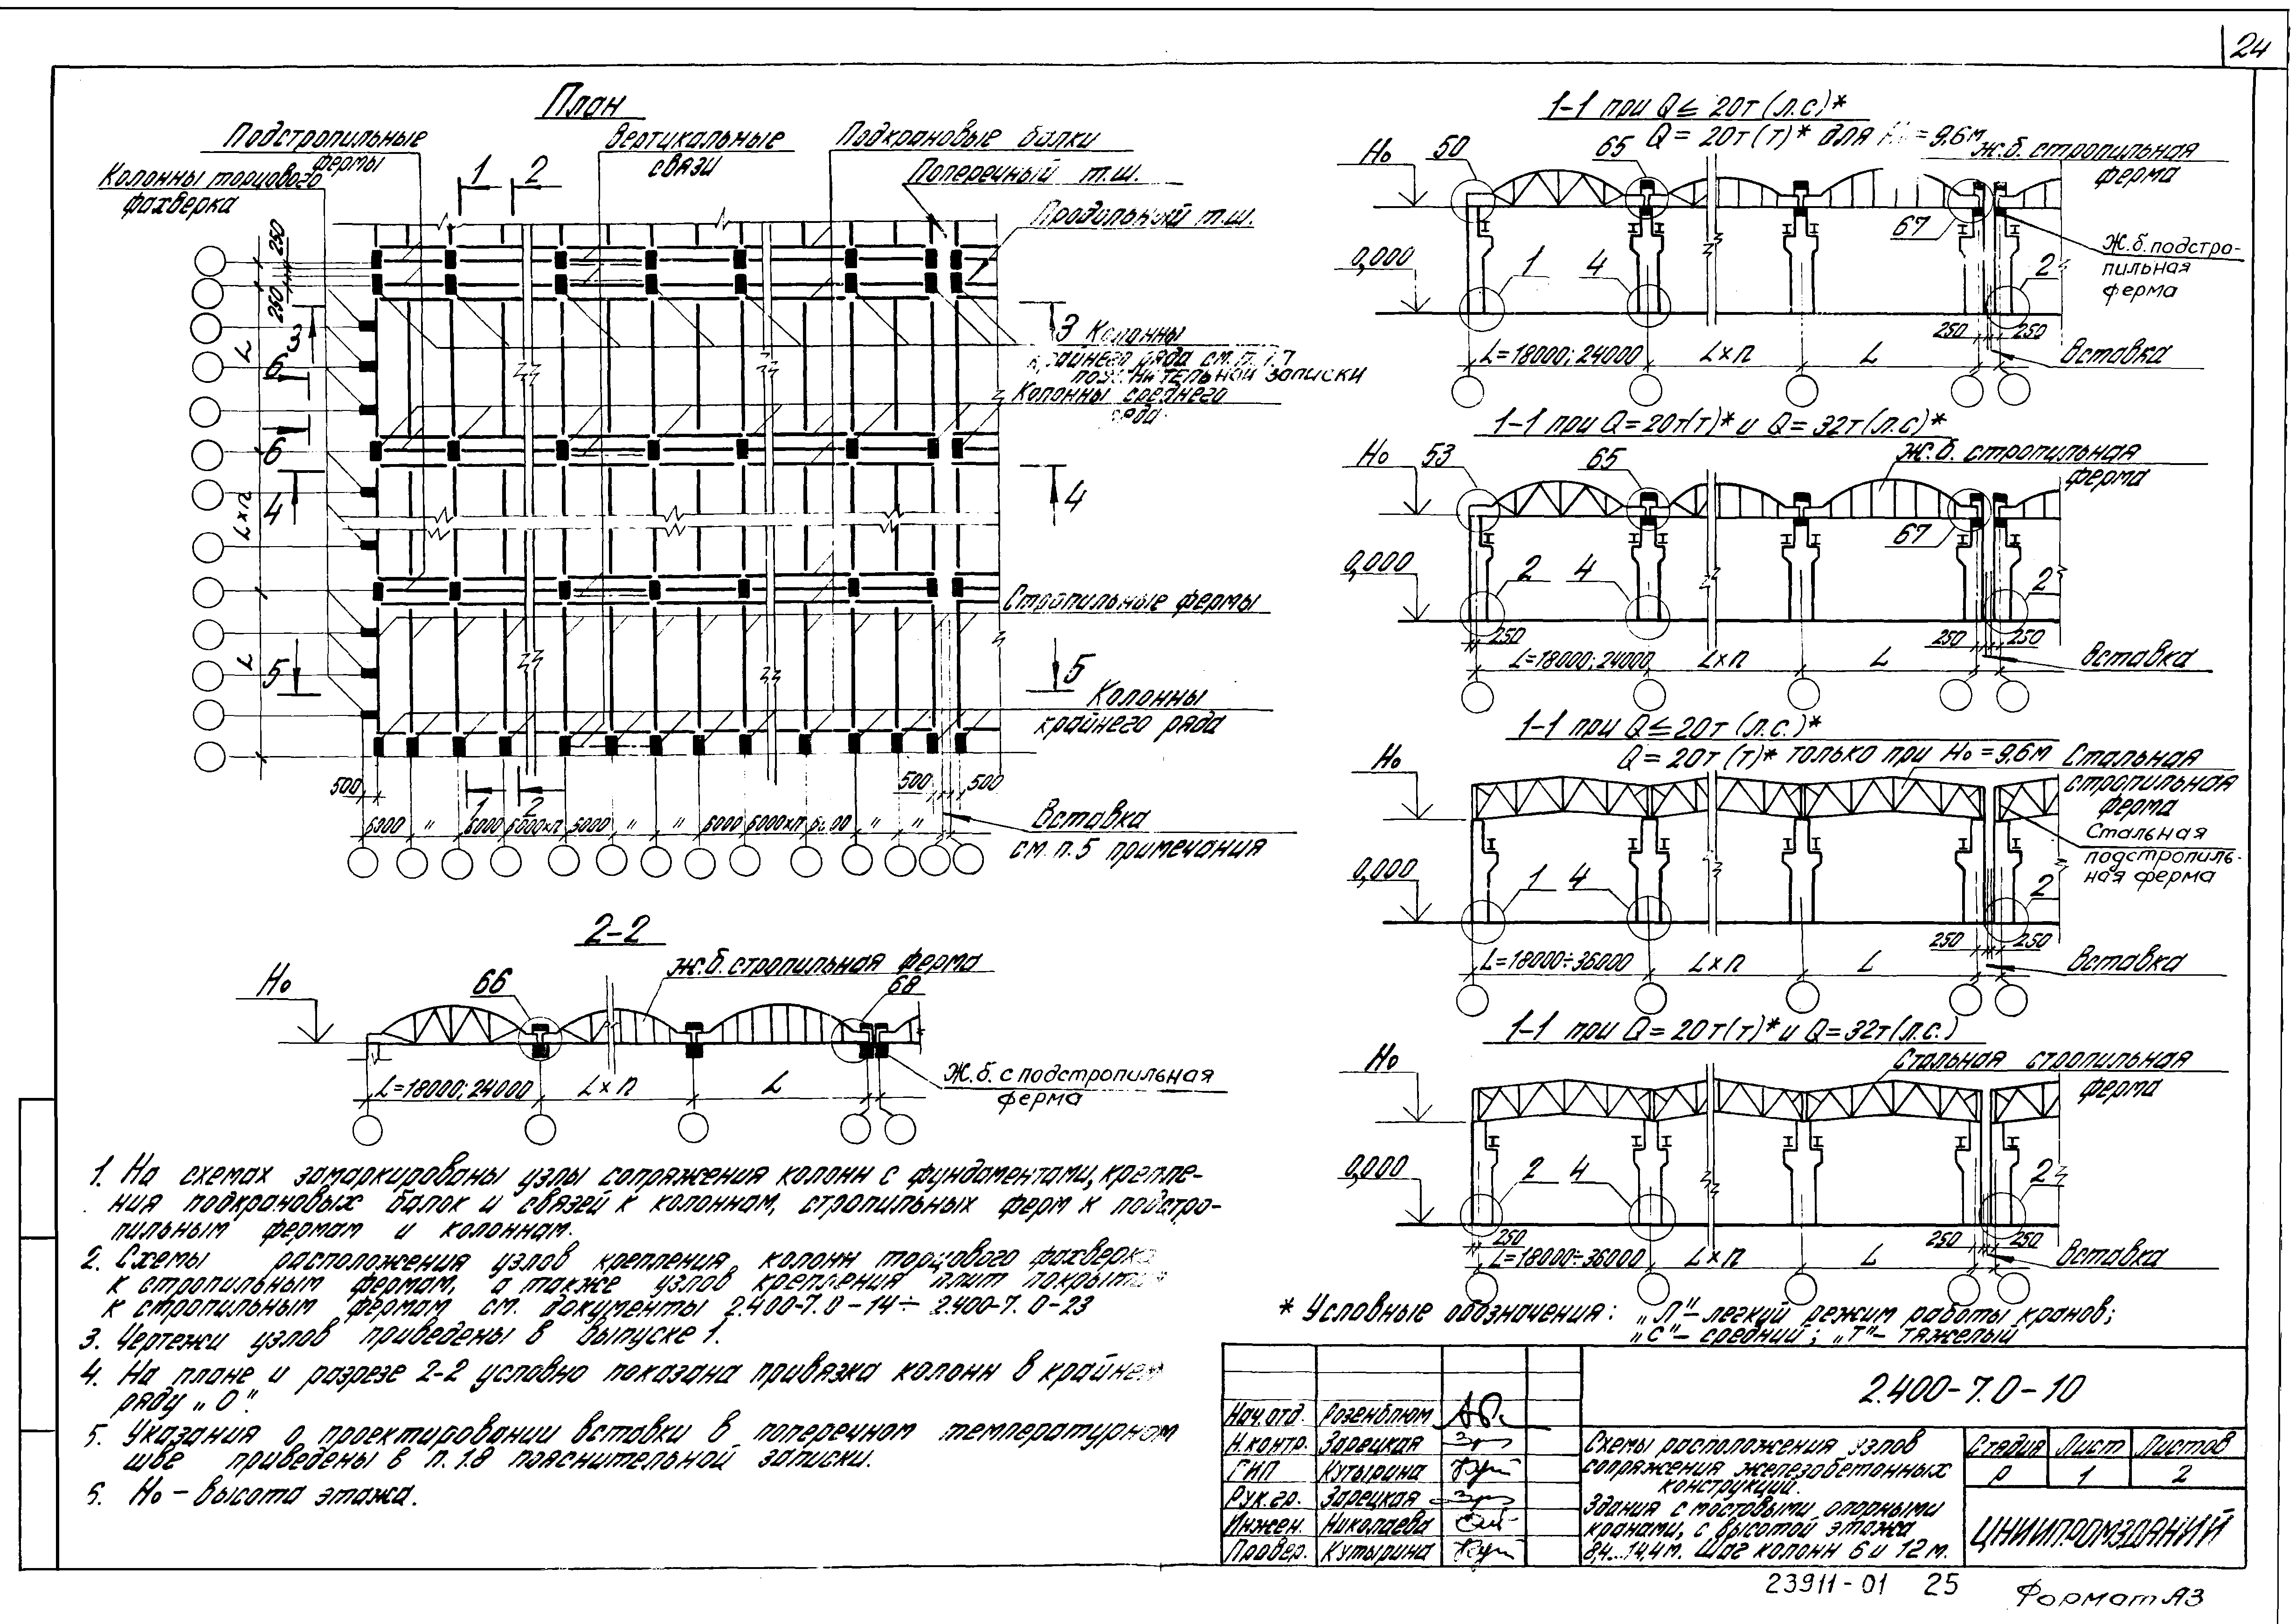 24
План
Подстропильные
фермы
Вертикальные
связи
Подкрановые балки
Поперечный т.ш.
Продольный т.ш.
Колонны торцового
фахверка
1 2
250
250
3
L
6
6
4
L×п
L
5
3
Колонны
крайнего ряда см. п.
пояснительной записки
Колонны среднего
ряда
4
Стропильные фермы
5
Колонны
крайнего ряда
500
1 2
500 500
6000 " 6000 6000×п 6000 " " 6000 6000×п 6000 " "
Вставка
см. п. 5 примечания
2-2
Н₀
66
ж.б. стропильная ферма
68
L=18000;24000 L×п L
Ж.б. с подстропильная
ферма
1. На схемах замаркированы узлы сопряжения колонн с фундаментами, крепле-
ния подкрановых балок и связей к колоннам, стропильных ферм к подстро-
пильным фермам и колоннам.
2. Схемы расположения узлов крепления колонн торцового фахверка
к стропильным фермам, а также узлов крепления плит покрытия
к стропильным фермам см. документы 2.400-7.0-14÷2.400-7.0-23
3. Чертежи узлов приведены в выпуске 1.
4. На плане и разрезе 2-2 условно показана привязка колонн в крайнем
ряду „О".
5. Указания о проектировании вставки в поперечном температурном
шве приведены в п. 1.8 пояснительной записки.
6. Н₀ – высота этажа.
1-1 при Q ≤ 20т (л.с)*
Q = 20т (т)* для Н₀ = 9,6м
Н₀ 50 65
Ж.б. стропильная
ферма
67
Ж.б. подстро-
пильная
ферма
0,000 1 4 2
250 250
L=18000;24000 L×п L Вставка
1-1 при Q=20т(т)* и Q=32т(л.с)*
Н₀ 53 65
Ж.б. стропильная
ферма
67
0,000 2 4 2
250 250 250
L=18000;24000 L×п L Вставка
1-1 при Q ≤ 20т (л.с.)*
Q = 20т (т)* только при Н₀ = 9,6м
Н₀
Стальная
стропильная
ферма
Стальная
подстропиль-
ная ферма
0,000 1 4 2
250 250
L=18000÷36000 L×п L Вставка
1-1 при Q = 20т(т)* и Q = 32т(л.с.)
Н₀
Стальная стропильная
ферма
0,000 2 4 2
250 250 250
L=18000÷36000 L×п L Вставка
* Условные обозначения: „Л"– легкий режим работы кранов;
„С"– средний; „Т"– тяжелый
2.400-7.0-10
Нач.отд. Розенблюм
Н.контр. Зарецкая
ГИП Кутырина
Рук.гр. Зарецкая
Инжен. Николаева
Провер. Кутырина
Схемы расположения узлов
сопряжения железобетонных
конструкций.
Здания с мостовыми опорными
кранами, с высотой этажа
8,4...14,4м. Шаг колонн 6 и 12 м.
Стадия Лист Листов
Р 1 2
ЦНИИПРОМЗДАНИЙ
23911-01 25
Формат А3